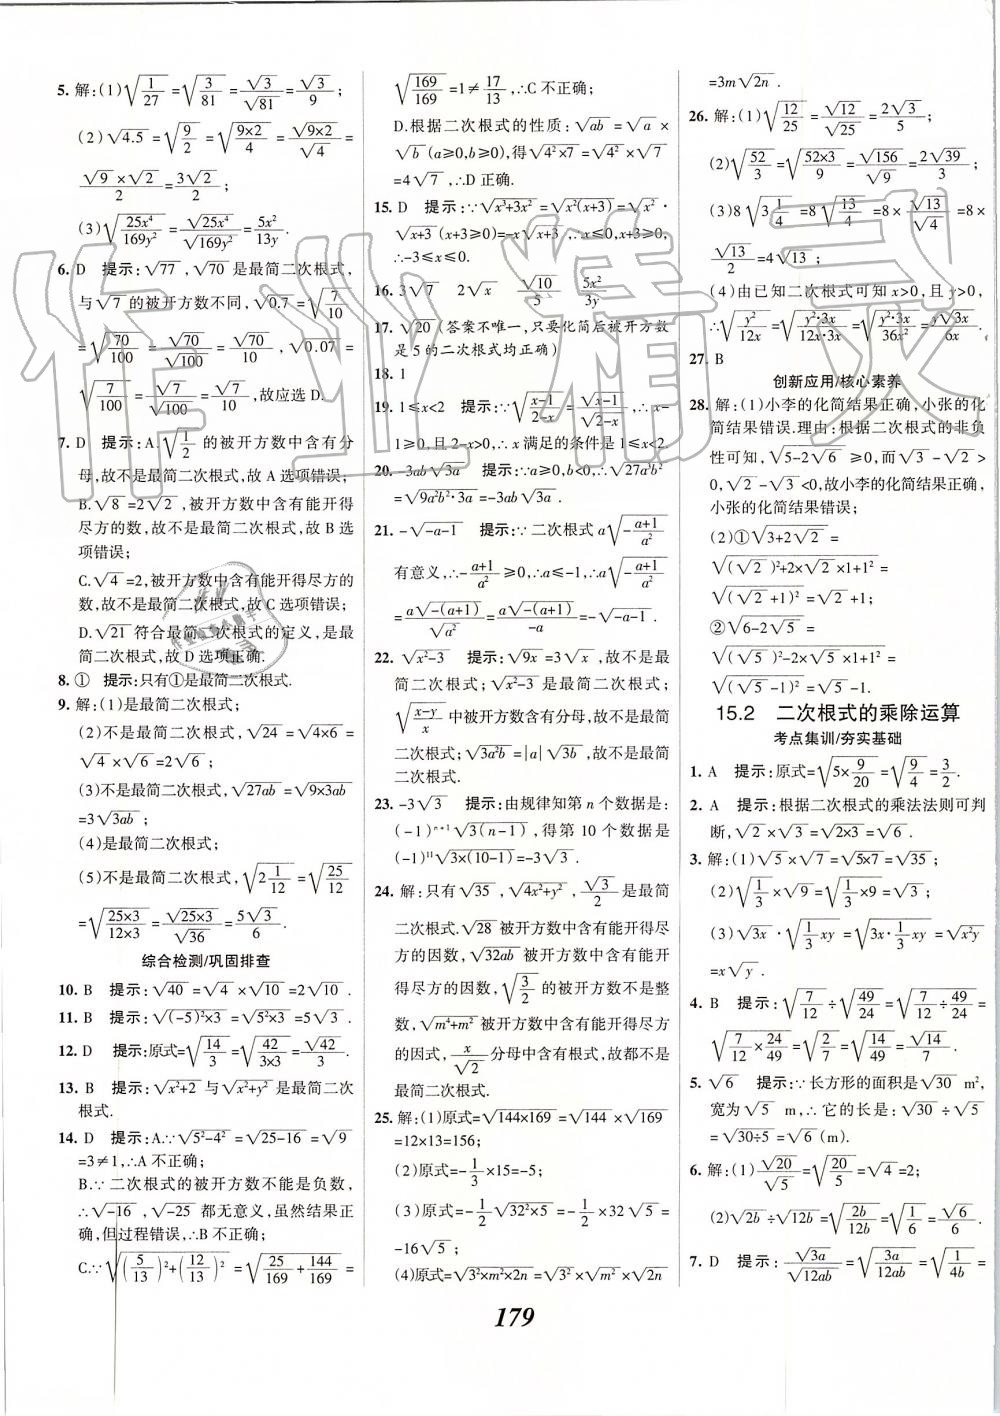 5. 解:(1)√(1/27)=√(3/81)=√3/√81=√3/9;
(2)√4.5=√(9/2)=√(9×2/4)=√(9×2)/√4=
√9×√2/2=3√2/2;
(3)√(25x⁴/169y²)=√(25x⁴)/√(169y²)=5x²/13y.
6. D 提示:√77,√70是最简二次根式,
与√7的被开方数不同,√0.7=√(7/10)
=√(70/100)=√70/√100=√70/10,√0.07=
√(7/100)=√7/√100=√7/10,故应选D.
7. D 提示:A.√(1/2)的被开方数中含有分
母,故不是最简二次根式,故A选项错误;
B.√8=2√2,被开方数中含有能开得
尽方的数,故不是最简二次根式,故B选
项错误;
C.√4=2,被开方数中含有能开得尽方的
数,故不是最简二次根式,故C选项错误;
D.√21符合最简二次根式的定义,是最
简二次根式,故D选项正确.
8. ① 提示:只有①是最简二次根式.
9. 解:(1)是最简二次根式;
(2)不是最简二次根式,√24=√(4×6)=
√4×√6=2√6;
(3)不是最简二次根式,√(27ab)=√(9×3ab)
=3√(3ab);
(4)是最简二次根式;
(5)不是最简二次根式,√(2 1/12)=√(25/12)
=√(25×3/12×3)=√(25×3)/√36=5√3/6.
综合检测/巩固排查
10. B 提示:√40=√4×√10=2√10.
11. B 提示:√((-5)²×3)=√(5²×3)=5√3.
12. D 提示:原式=√(14/3)=√(42/3×3)=√42/3.
13. B 提示:√(x²+2)与√(x²+y²)是最简二次
根式.
14. D 提示:A.∵√(5²-4²)=√(25-16)=√9
=3≠1,∴A不正确;
B.∵二次根式的被开方数不能是负数,
∴√-16,√-25都无意义,虽然结果正
确,但过程错误,∴B不正确;
C.∵√((5/13)²+(12/13)²)=√(25/169+144/169)=
√(169/169)=1≠17/13,∴C不正确;
D.根据二次根式的性质:√(ab)=√a×
√b(a≥0,b≥0),得√(4²×7)=√4²×√7
=4√7,∴D正确.
15. D 提示:∵√(x³+3x²)=√(x²(x+3))=√x²·
√(x+3)(x+3≥0)=-x√(x+3),∴x≤0,
∴-3≤x≤0.
16. 3√7 2√x √10/5 5x²/3y
17. √20(答案不唯一,只要化简后被开方数
是5的二次根式均正确)
18. 1
19. 1≤x<2 提示:∵√(x-1/2-x)=√(x-1)/√(2-x),∴x-
1≥0,且2-x>0,∴x满足的条件是1≤x<2.
20. -3ab√(3a) 提示:∵a>0,b<0,∴√(27a³b²)
=√(9a²b²·3a)=-3ab√(3a).
21. -√(-a-1) 提示:∵二次根式a√(-(a+1)/a²)
有意义,∴-(a+1)/a²≥0,∴a≤-1,∴a√(-(a+1)/a²)
=a√(-(a+1))/√a²=a√(-(a+1))/-a=-√(-a-1).
22. √(x²-3) 提示:√(9x)=3√x,故不是最
简二次根式;√(x²-3)是最简二次根式,
√(x-y/x)中被开方数含有分母,故不是最简
二次根式;√(3a²b)=|a|√(3b),故不是最
简二次根式.
23. -3√3 提示:由规律知第n个数据是:
(-1)ⁿ⁺¹√(3(n-1)),得第10个数据是
(-1)¹¹√(3×(10-1))=-3√3.
24. 解:只有√35,√(4x²+y²),√3/2是最简
二次根式.√28被开方数中含有能开得尽
方的因数,√(32ab)被开方数中含有能开
得尽方的因数,√(3/2)被开方数不是整
数,√(m⁴+m²)被开方数中含有能开得尽方
的因式,x/√2分母中含有根式,故都不是
最简二次根式.
25. 解:(1)原式=√(144×169)=√144×√169
=12×13=156;
(2)原式=-1/3×15=-5;
(3)原式=-1/2√(32²×5)=-1/2×32√5=
-16√5;
(4)原式=√(3²×m²×2n)=√3²×√m²×√2n
=3m√2n.
26. 解:(1)√(12/25)=√12/√25=2√3/5;
(2)√(52/3)=√(52×3/9)=√156/√9=2√39/3;
(3)8√(3 1/4)=8√(13/4)=8×√13/√4=8×
√13/2=4√13;
(4)由已知二次根式可知x>0,且y>0,
∴√(y²/12x)=√(y²·3x/12x·3x)=√(y²·3x/36x²)=y√3x/6x.
27. B
创新应用/核心素养
28. 解:(1)小李的化简结果正确,小张的化
简结果错误.理由:根据二次根式的非负
性可知,√(5-2√6)≥0,而√3-√2>
0,√2-√3<0,故小李的化简结果正确,
小张的化简结果错误;
(2)①√(3+2√2)=
√((√2)²+2×√2+1²)=
√((√2+1)²)=√2+1;
②√(6-2√5)=
√((√5)²-2×√5+1²)=
√((√5-1)²)=√5-1.
15.2 二次根式的乘除运算
考点集训/夯实基础
1. A 提示:原式=√(5×9/20)=√(9/4)=3/2.
2. A 提示:根据二次根式的乘法法则可判
断,√2×√3=√(2×3)=√6.
3. 解:(1)√5×√7=√(5×7)=√35;
(2)√(1/3)×√9=√(1/3×9)=√3;
(3)√3x·√(1/3 xy)=√(3x·1/3 xy)=√(x²y)
=x√y.
4. B 提示:√(7/12)÷√(49/24)=√(7/12÷49/24)=
√(7/12×24/49)=√(2/7)=√(14/49)=√14/7.
5. √6 提示:∵长方形的面积是√30 m²,
宽为√5 m,∴它的长是:√30÷√5
=√(30÷5)=√6(m).
6. 解:(1)√20/√5=√(20/5)=√4=2;
(2)√2b÷√12b=√(2b/12b)=√(1/6)=√6/6.
7. D 提示:√3a/√12ab=√(3a/12ab)=√(1/4b)=
179
作业精灵